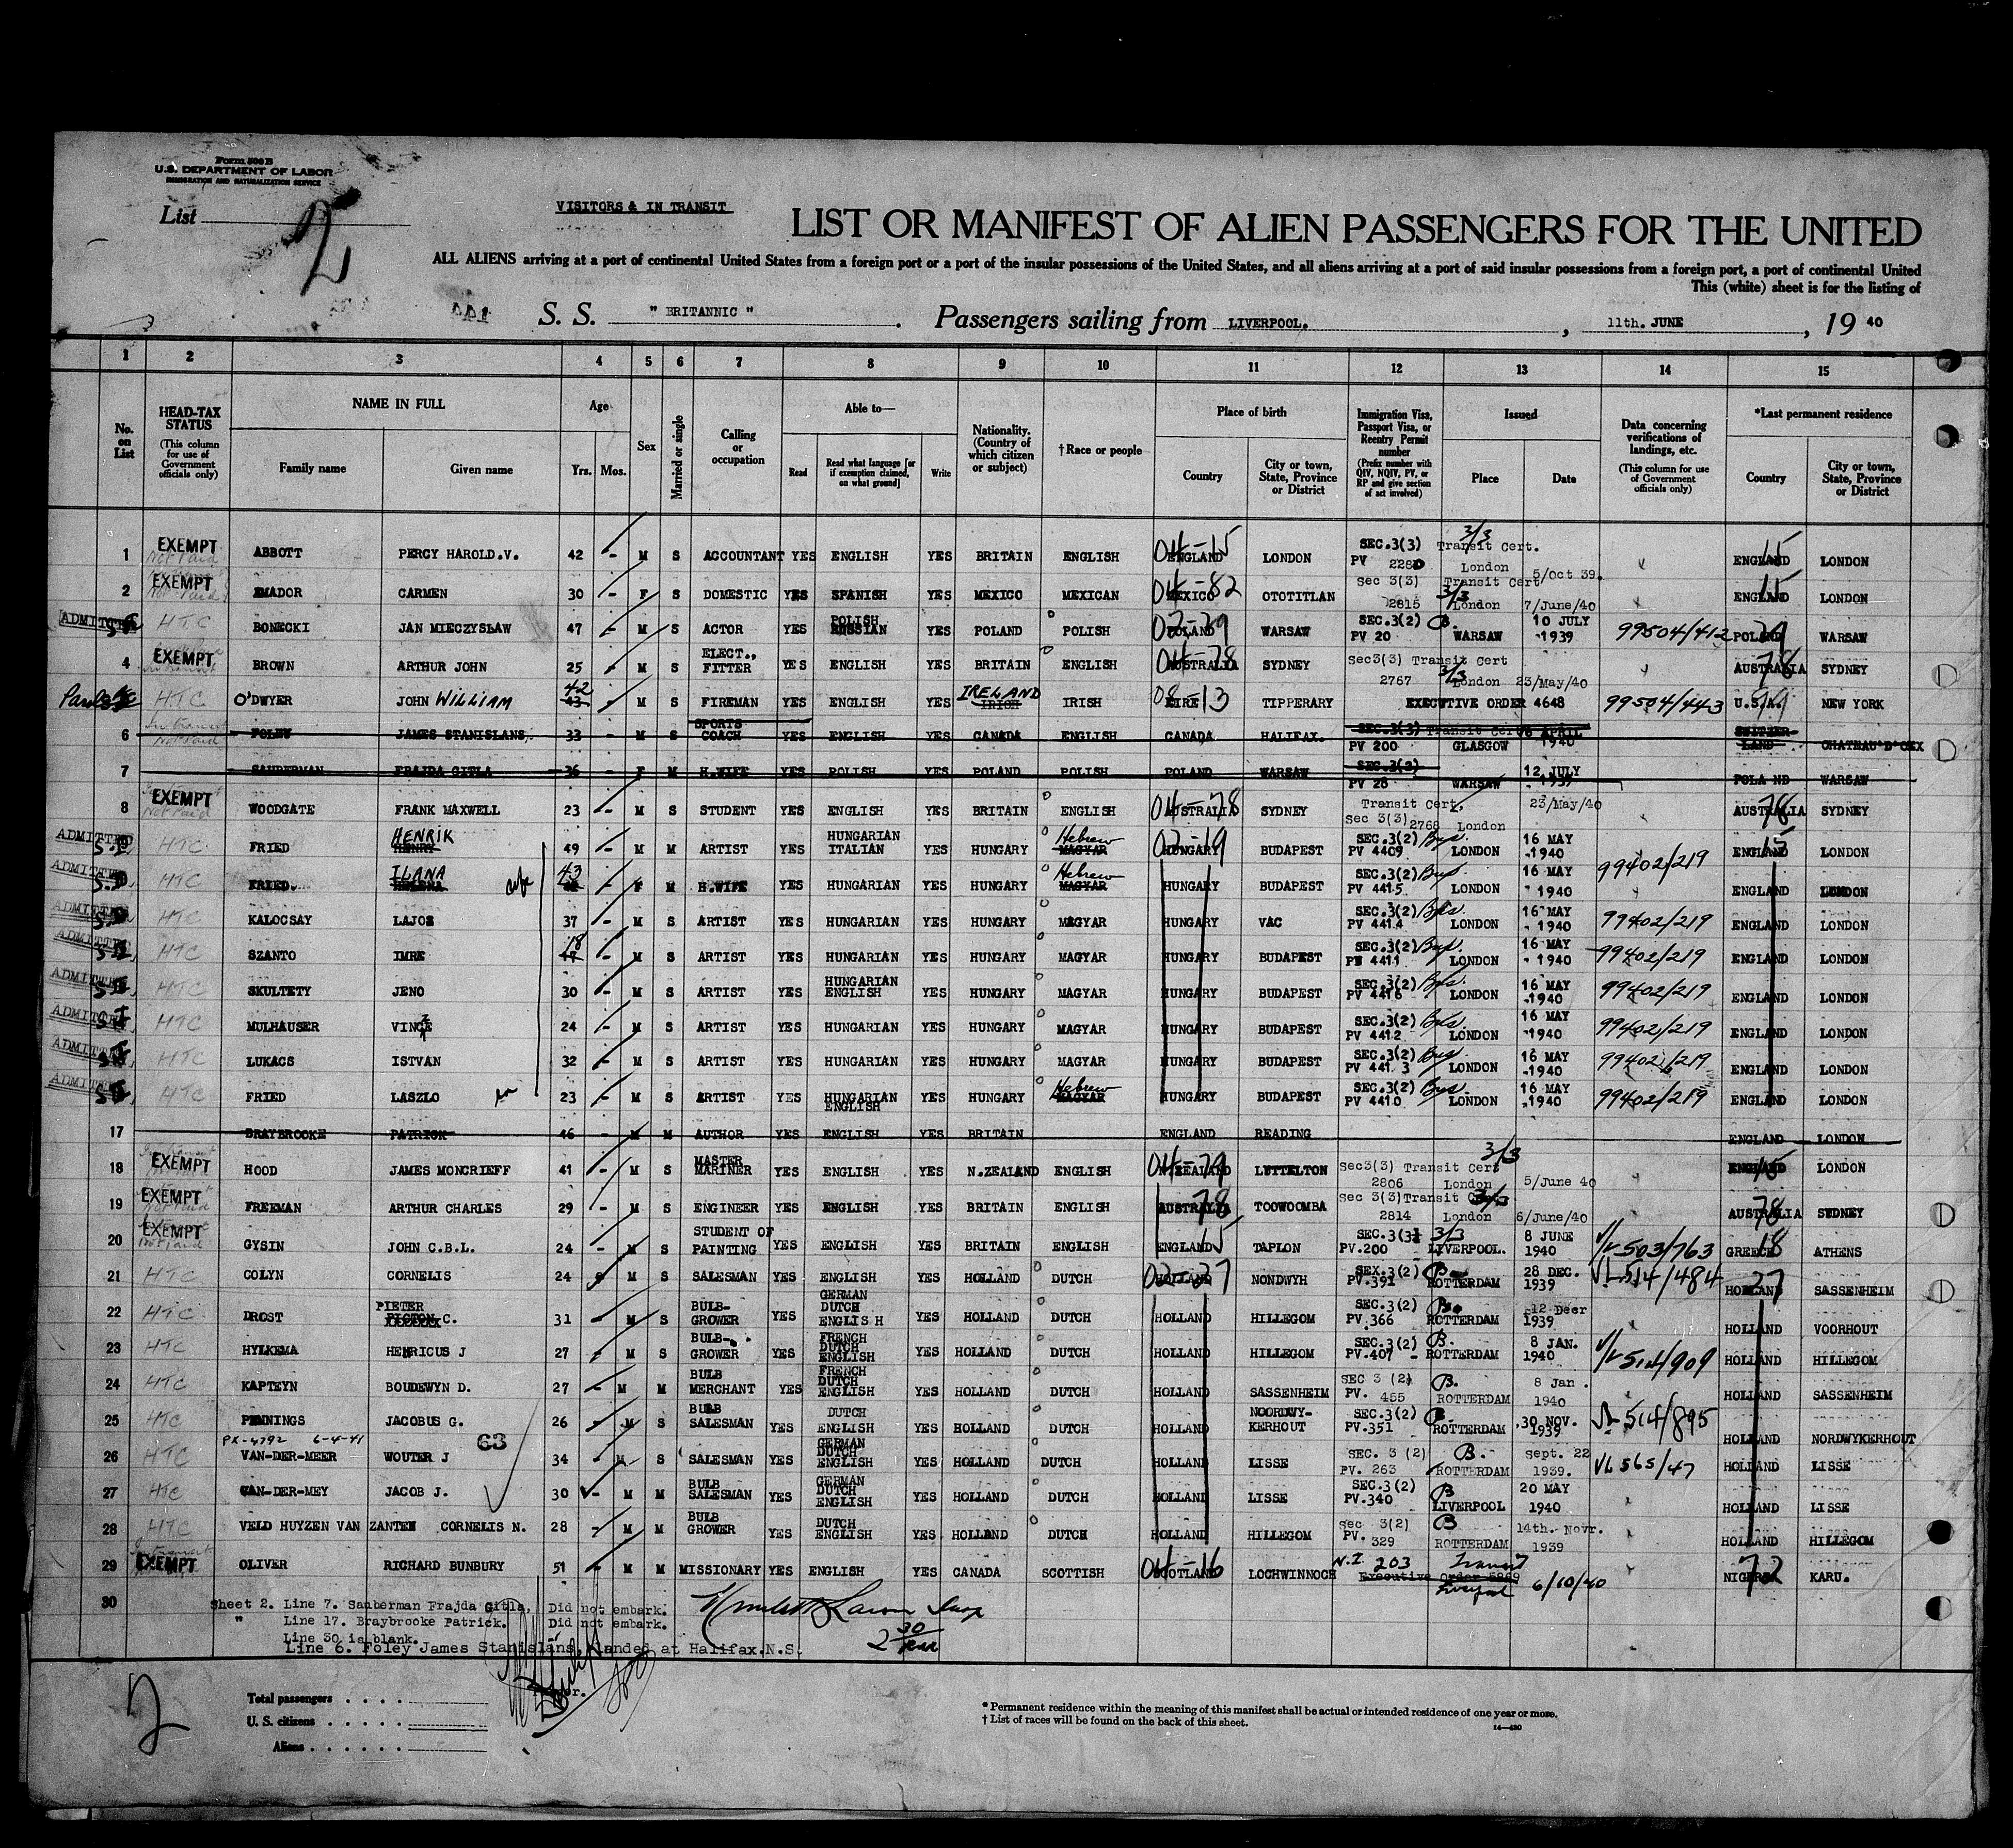 Form 500 B
U.S. DEPARTMENT OF LABOR
IMMIGRATION AND NATURALIZATION SERVICE
List 2
VISITORS & IN TRANSIT
LIST OR MANIFEST OF ALIEN PASSENGERS FOR THE UNITED
ALL ALIENS arriving at a port of continental United States from a foreign port or a port of the insular possessions of the United States, and all aliens arriving at a port of said insular possessions from a foreign port, a port of continental United
This (white) sheet is for the listing of
S. S. " BRITANNIC ". Passengers sailing from LIVERPOOL. , 11th. JUNE , 19 40
1 2 3 4 5 6 7 8 9 10 11 12 13 14 15
No. on List
HEAD-TAX STATUS (This column for use of Government officials only)
NAME IN FULL Family name Given name
Age Yrs. Mos.
Sex
Married or single
Calling or occupation
Able to— Read Read what language [or if exemption claimed, on what ground] Write
Nationality. (Country of which citizen or subject)
†Race or people
Place of birth Country City or town, State, Province or District
Immigration Visa, Passport Visa, or Reentry Permit number (Prefix number with QIV, NQIV, PV, or RP and give section of act involved)
Issued Place Date
Data concerning verifications of landings, etc. (This column for use of Government officials only)
*Last permanent residence Country City or town, State, Province or District
1 EXEMPT Not Paid ABBOTT PERCY HAROLD.V. 42 - M S ACCOUNTANT YES ENGLISH YES BRITAIN ENGLISH 04-15 ENGLAND LONDON SEC.3(3) PV 2280 3/3 Transit Cert. London 5/Oct 39. 15 ENGLAND LONDON
2 EXEMPT Not Paid AMADOR CARMEN 30 - F S DOMESTIC YES SPANISH YES MEXICO MEXICAN 04-82 MEXICO OTOTITLAN Sec 3(3) 2815 Transit Cert 3/3 London 7/June/40 15 ENGLAND LONDON
ADMITTED HTC BONECKI JAN MIECZYSŁAW 47 - M S ACTOR YES POLISH RUSSIAN YES POLAND POLISH POLAND WARSAW SEC.3(2) B. PV 20 WARSAW 10 JULY -1939 99504/412 POLAND WARSAW
4 EXEMPT BROWN ARTHUR JOHN 25 - M S ELECT., FITTER YES ENGLISH YES BRITAIN ENGLISH 04-78 AUSTRALIA SYDNEY Sec3(3) Transit Cert 2767 3/3 London 23/May/40 78 AUSTRALIA SYDNEY
HTC O'DWYER JOHN WILLIAM 42 43 - M S FIREMAN YES ENGLISH YES IRELAND IRISH IRISH 08-13 EIRE TIPPERARY EXECUTIVE ORDER 4648 99504/443 U.S.A. NEW YORK
6 Not Paid FOLEY JAMES STANISLANS, 33 - M S SPORTS COACH YES ENGLISH YES CANADA ENGLISH CANADA HALIFAX. SEC.3(3) Transit Cert PV 200 GLASGOW 6 APRIL 1940 SWITZER-LAND CHATEAU'D'OEX
7 SAUBERMAN FRAJDA GITLA 36 - F M H.WIFE YES POLISH YES POLAND POLISH POLAND WARSAW SEC.3(2) PV 28 WARSAW 12 JULY 1939 POLAND WARSAW
8 EXEMPT Not Paid WOODGATE FRANK MAXWELL 23 - M S STUDENT YES ENGLISH YES BRITAIN ENGLISH 04-78 AUSTRALIA SYDNEY Transit Cert, Sec 3(3) 2768 London 23/May/40 78 AUSTRALIA SYDNEY
ADMITTED HTC FRIED HENRIK HENRY 49 - M M ARTIST YES HUNGARIAN ITALIAN YES HUNGARY Hebrew MAGYAR HUNGARY BUDAPEST SEC.3(2) Bus. PV 4409 LONDON 16 MAY -1940 99402/219 15 ENGLAND LONDON
ADMITTED HTC FRIED. ILANA wife 43 - F M H.WIFE YES HUNGARIAN YES HUNGARY Hebrew MAGYAR HUNGARY BUDAPEST SEC.3(2) Bus PV 4415 LONDON 16 MAY - 1940 ENGLAND LONDON
ADMITTED HTC KALOCSAY LAJOS 37 - M S ARTIST YES HUNGARIAN YES HUNGARY MAGYAR HUNGARY VAC SEC.3(2) Bus. PV 4414 LONDON 16 MAY - 1940 99402/219 ENGLAND LONDON
ADMITTED HTC SZANTO IMRE 18 17 - M S ARTIST YES HUNGARIAN YES HUNGARY MAGYAR HUNGARY BUDAPEST SEC.3(2) Bus. PV 4411 LONDON 16 MAY - 1940 99402/219 ENGLAND LONDON
ADMITTED HTC SKULTETY JENO 30 - M S ARTIST YES HUNGARIAN ENGLISH YES HUNGARY MAGYAR HUNGARY BUDAPEST SEC.3(2) Bus. PV 4416 LONDON 16 MAY -1940 99402/219 ENGLAND LONDON
ADMITTED HTC MULHAUSER VINCE 24 - M S ARTIST YES HUNGARIAN YES HUNGARY MAGYAR HUNGARY BUDAPEST SEC.3(2) Bus. PV 4412 LONDON 16 MAY -1940 99402/219 ENGLAND LONDON
ADMITTED HTC LUKACS ISTVAN 32 - M S ARTIST YES HUNGARIAN YES HUNGARY MAGYAR HUNGARY BUDAPEST SEC.3(2) Bus. PV 441 3 LONDON 16 MAY -1940 99402/219 ENGLAND LONDON
ADMITTED HTC FRIED LASZLO 23 - M S ARTIST YES HUNGARIAN ENGLISH YES HUNGARY Hebrew MAGYAR HUNGARY BUDAPEST SEC.3(2) Bus. PV 4410 LONDON 16 MAY -1940 99402/219 ENGLAND LONDON
17 BRAYBROOKE PATRICK 46 - M M AUTHOR YES ENGLISH YES BRITAIN ENGLAND READING ENGLAND LONDON
18 EXEMPT HOOD JAMES MONCRIEFF 41 - M S MASTER MARINER YES ENGLISH YES N.ZEALAND ENGLISH 04-79 N.ZEALAND LYTTELTON Sec3(3) Transit Cert 3/3 2806 London 5/June 40 15 ENGLAND LONDON
19 EXEMPT Not Paid FREEMAN ARTHUR CHARLES 29 - M S ENGINEER YES ENGLISH YES BRITAIN ENGLISH 78 AUSTRALIA TOOWOOMBA Sec 3(3) Transit Cert 3/3 2814 London 6/June/40 78 AUSTRALIA SYDNEY
20 EXEMPT Not Paid GYSIN JOHN C.B.L. 24 - M S STUDENT OF PAINTING YES ENGLISH YES BRITAIN ENGLISH 15 ENGLAND TAPLON SEC.3(3) 3/3 PV.200 LIVERPOOL. 8 JUNE 1940 VL503/763 18 GREECE ATHENS
21 HTC COLYN CORNELIS 24 M S SALESMAN YES ENGLISH YES HOLLAND DUTCH HOLLAND NONDWYH SEX.3(2) B PV.391 ROTTERDAM 28 DEC. 1939 VL514/484 27 HOLLAND SASSENHEIM
22 HTC DROST PIETER C. 31 - M S BULB-GROWER YES GERMAN DUTCH ENGLISH YES HOLLAND DUTCH HOLLAND HILLEGOM SEC.3(2) B. PV.366 ROTTERDAM 12 Decr 1939 HOLLAND VOORHOUT
23 HTC HYLKEMA HENRICUS J 27 - M S BULB-GROWER YES FRENCH DUTCH ENGLISH YES HOLLAND DUTCH HOLLAND HILLEGOM SEC.3(2) B. PV.407 - ROTTERDAM 8 JAN. 1940 VL514/909 HOLLAND HILLEGOM
24 HTC KAPTEYN BOUDEWYN D. 27 - M M BULB MERCHANT YES FRENCH DUTCH ENGLISH YES HOLLAND DUTCH HOLLAND SASSENHEIM SEC 3 (2) B. PV. 455 ROTTERDAM 8 Jan . 1940 HOLLAND SASSENHEIM
25 HTC PENNINGS JACOBUS G. 26 - M S BULB SALESMAN YES DUTCH ENGLISH YES HOLLAND DUTCH HOLLAND NOORDWY-KERHOUT SEC.3(2) B PV.351 ROTTERDAM 30 NOV. 1939 VL514/895 HOLLAND NORDWYKERHOUT
PX-4792 6-4-41 63
26 HTC VAN-DER-MEER WOUTER J 34 - M S SALESMAN YES GERMAN DUTCH ENGLISH YES HOLLAND DUTCH HOLLAND LISSE SEC. 3 (2) B. PV. 263 ROTTERDAM Sept. 22 1939. VL565/47 HOLLAND LISSE
27 HTC VAN-DER-MEY JACOB J. 30 - M M BULB SALESMAN YES GERMAN DUTCH ENGLISH YES HOLLAND DUTCH HOLLAND LISSE SEC.3(2) B PV.340 LIVERPOOL 20 MAY 1940 HOLLAND LISSE
28 HTC VELD HUYZEN VAN ZANTEN CORNELIS N. 28 - M M BULB GROWER YES DUTCH ENGLISH YES HOLLAND DUTCH HOLLAND HILLEGOM Sec 3(2) B PV. 329 ROTTERDAM 14th. Novr. 1939 HOLLAND HILLEGOM
29 EXEMPT OLIVER RICHARD BUNBURY 51 - M M MISSIONARY YES ENGLISH YES CANADA SCOTTISH 04-16 SCOTLAND LOCHWINNOCH N.I 203 Transit Executive Order 5869 Liverpool 6/10/40 72 NIGERIA KARU.
30
Sheet 2. Line 7. Sauberman Frajda Gitla, Did not embark.
" Line 17. Braybrooke Patrick. Did not embark.
Line 30 is blank.
Line 6. Foley James Stanislans, landed at Halifax.N.S.
2 30
2
Total passengers . . . .
U. S. citizens . . . . .
Aliens . . . . . .
* Permanent residence within the meaning of this manifest shall be actual or intended residence of one year or more.
† List of races will be found on the back of this sheet.
14—430